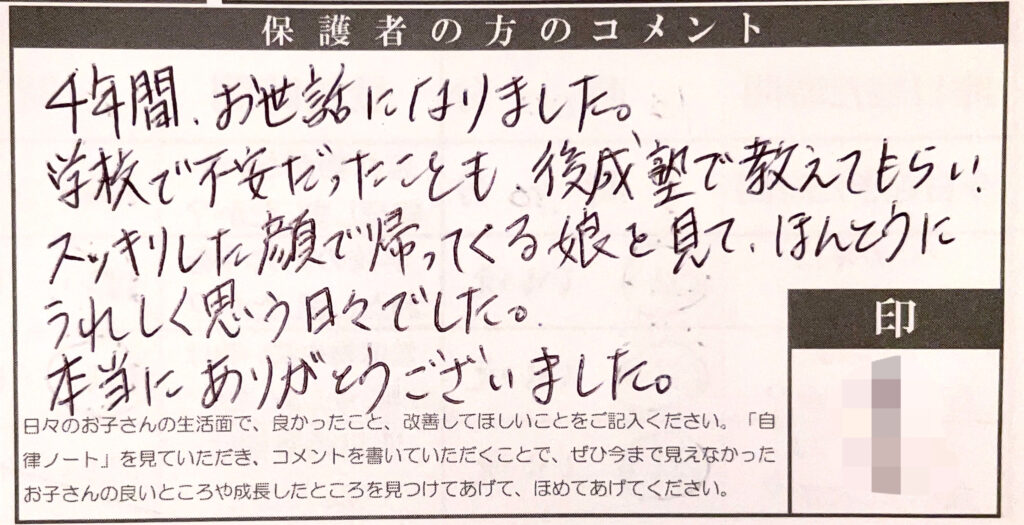 保護者の方のコメント
4年間、お世話になりました。
学校で不安だったことも、後成塾で教えてもらい、
スッキリした顔で帰ってくる娘を見て、ほんとうに
うれしく思う日々でした。
本当にありがとうございました。
印
日々のお子さんの生活面で、良かったこと、改善してほしいことをご記入ください。「自
律ノート」を見ていただき、コメントを書いていただくことで、ぜひ今まで見えなかった
お子さんの良いところや成長したところを見つけてあげて、ほめてあげてください。